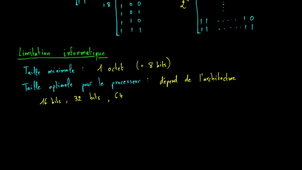 18
1 0 0
1 0 1
1 1 0
1 1 1
2
1 1 ...... 1 0
1 1 ...... 1 1
Limitation informatique
Taille minimale : 1 octet (= 8 bits)
Taille optimale pour le processeur : dépend de l'architecture
16 bits, 32 bits, 64